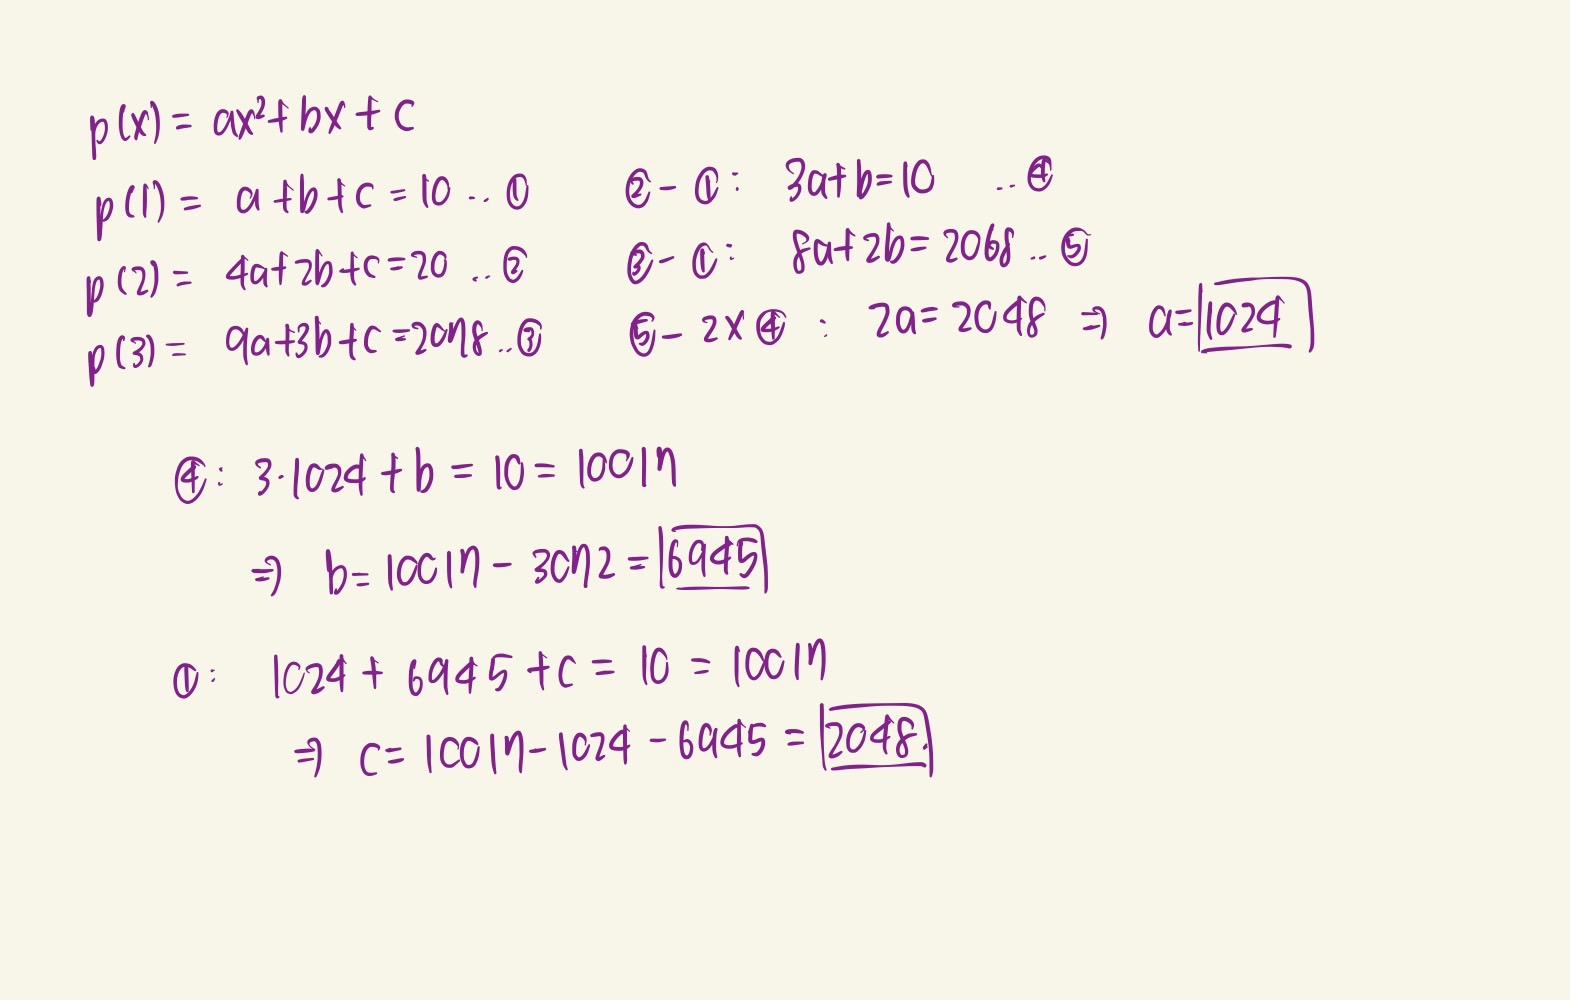 p(x) = ax²+ bx + c
p(1) = a+b+c = 10 ... ①
p(2) = 4a+2b+c=20 ... ②
p(3) = 9a+3b+c =2078 ... ③
②- ①: 3a+b=10 ... ④
③- ①: 8a+2b= 2068 ... ⑤
⑤- 2×④ : 2a= 2048 ⇒ a= 1024
④: 3·1024 + b = 10 = 10017
⇒ b= 10017 - 3072 = 6945
①: 1024 + 6945 +c = 10 = 10017
⇒ c= 10017- 1024 - 6945 = 2048.